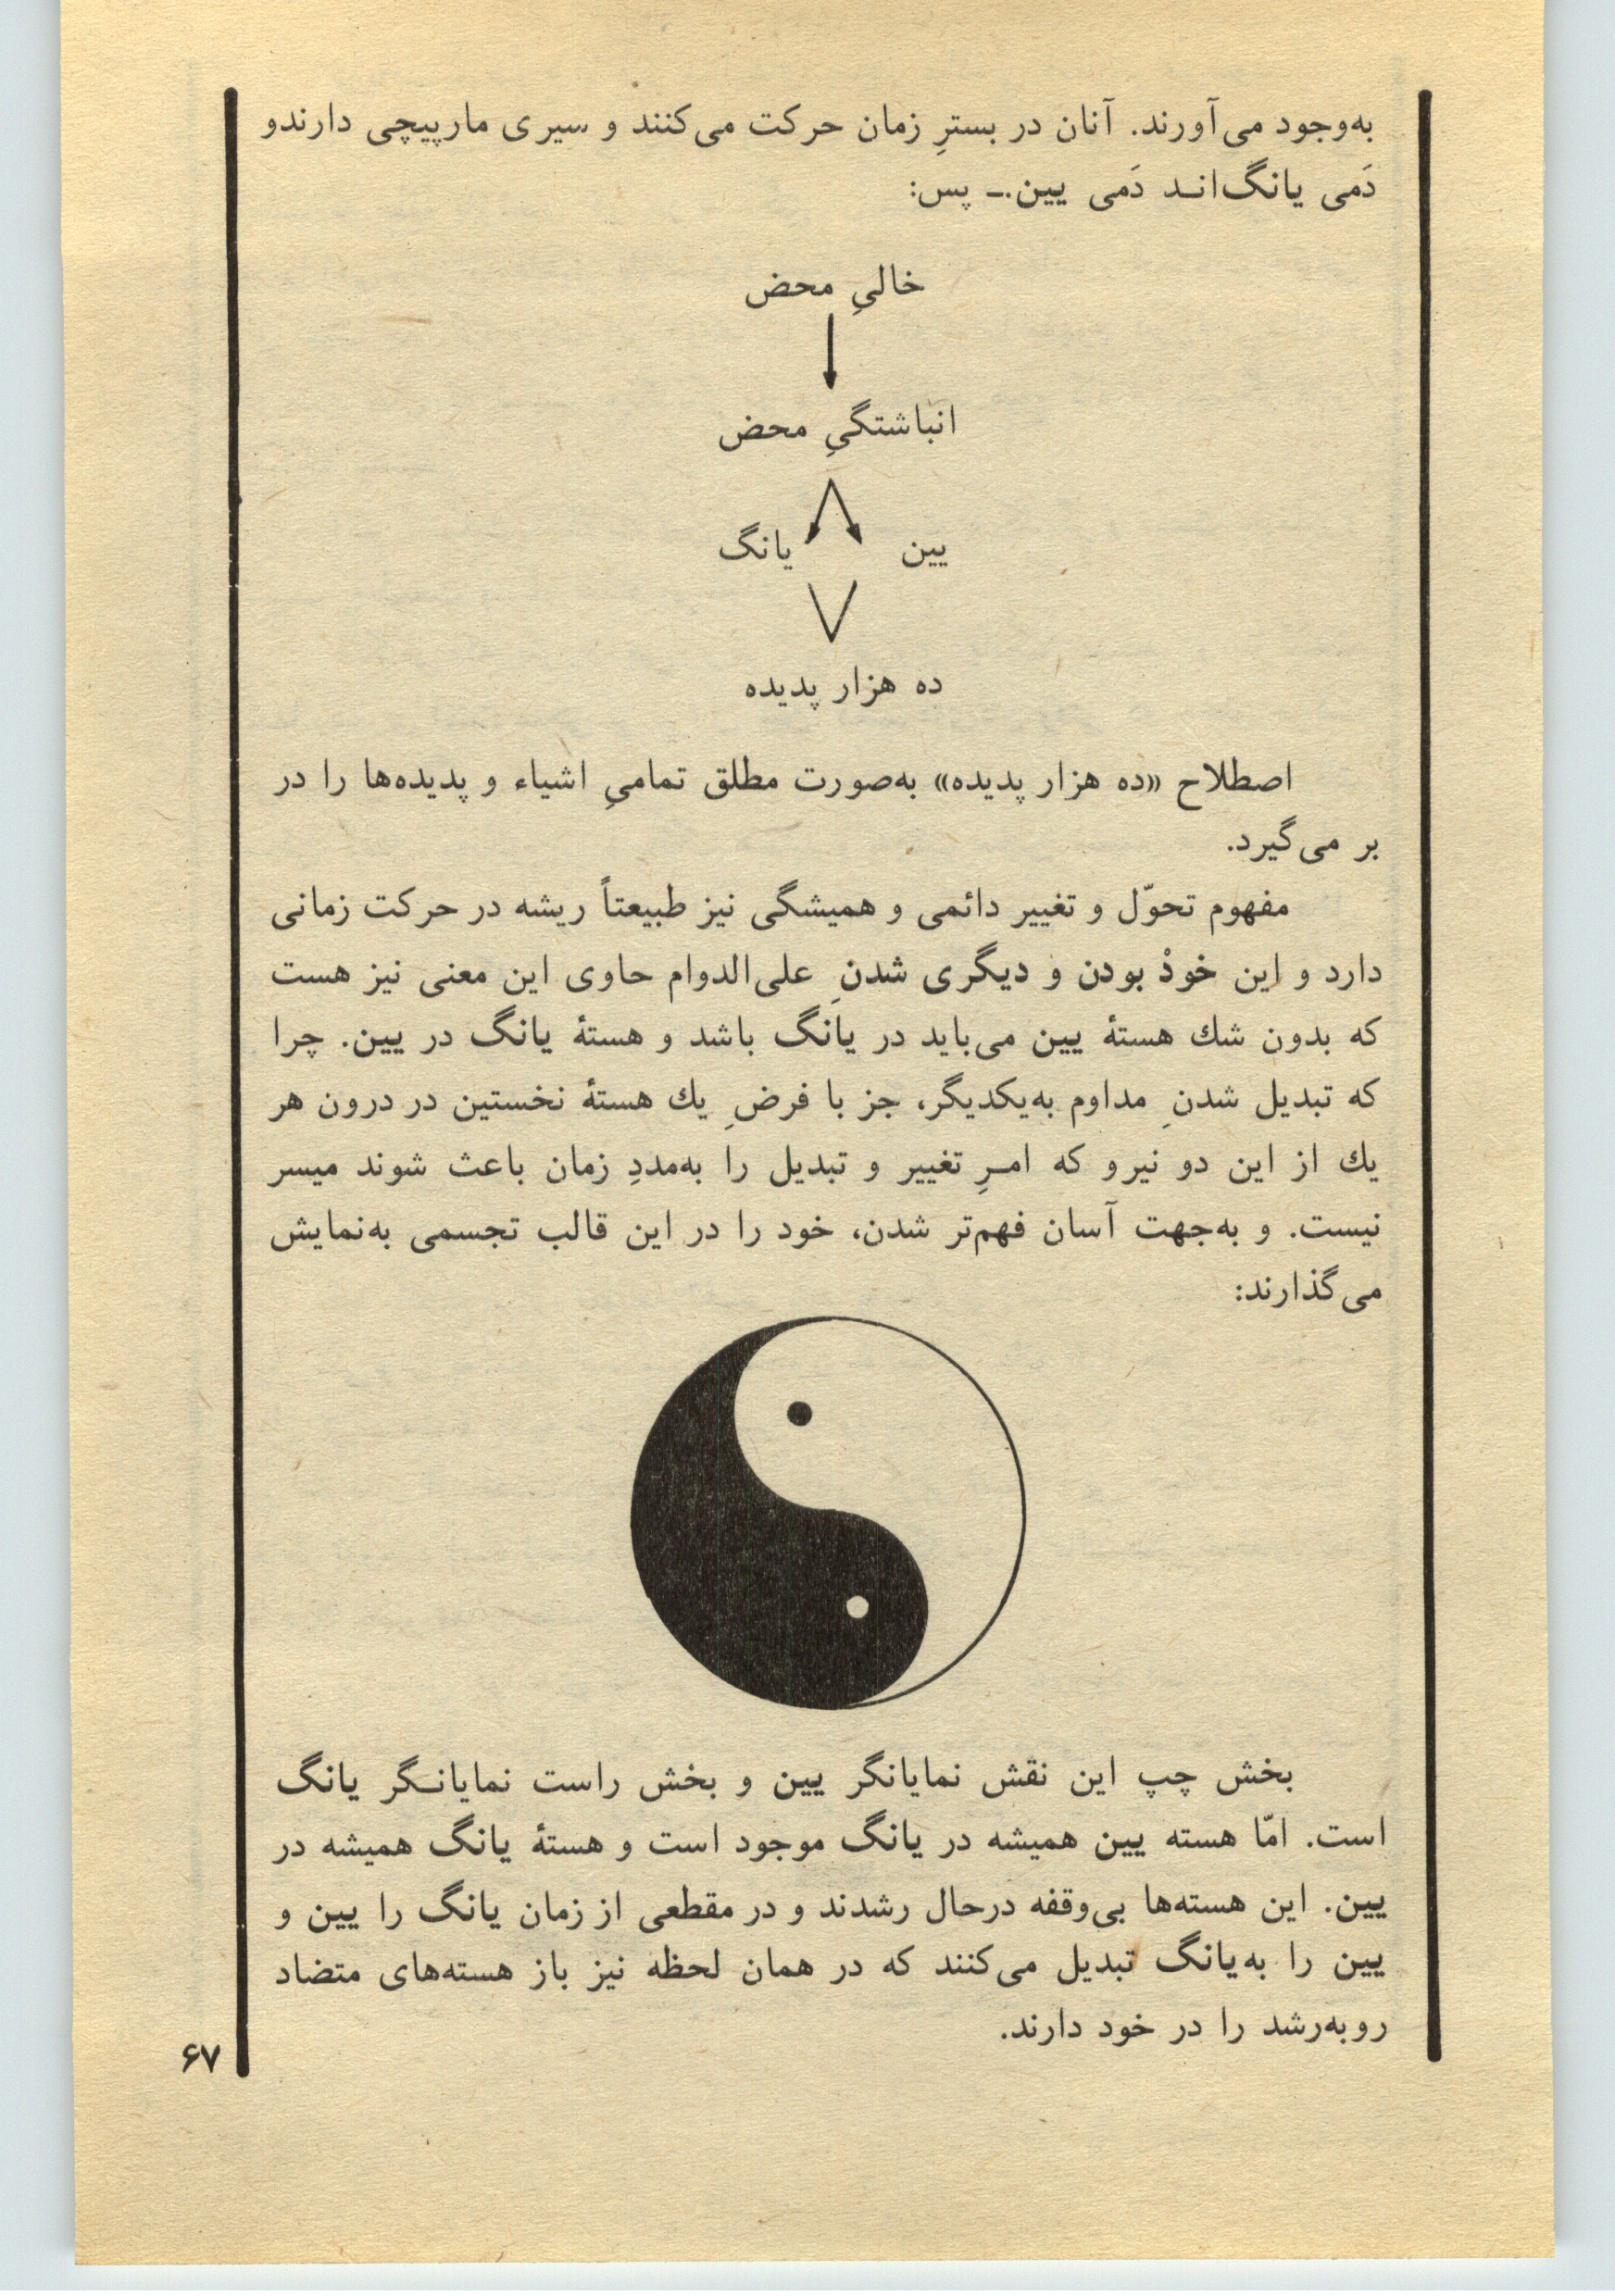 به‌وجود می‌آورند. آنان در بسترِ زمان حرکت می‌کنند و سیری مارپیچی دارندو
دَمی یانگ‌انـد دَمی یین.ـ پس:
خالیِ محض
انباشتگیِ محض
یین یانگ
ده هزار پدیده
اصطلاح «ده هزار پدیده» به‌صورت مطلق تمامیِ اشیاء و پدیده‌ها را در
بر می‌گیرد.
مفهوم تحوّل و تغییر دائمی و همیشگی نیز طبیعتاً ریشه در حرکت زمانی
دارد و این خودْ بودن و دیگری شدنِ علی‌الدوام حاوی این معنی نیز هست
که بدون شك هستهٔ یین می‌باید در یانگ باشد و هستهٔ یانگ در یین. چرا
که تبدیل شدنِ مداوم به‌یکدیگر، جز با فرضِ یك هستهٔ نخستین در درون هر
یك از این دو نیرو که امـرِ تغییر و تبدیل را به‌مددِ زمان باعث شوند میسر
نیست. و به‌جهت آسان فهم‌تر شدن، خود را در این قالب تجسمی به‌نمایش
می‌گذارند:
بخش چپ این نقش نمایانگر یین و بخش راست نمایانـگر یانگ
است. امّا هسته یین همیشه در یانگ موجود است و هستهٔ یانگ همیشه در
یین. این هسته‌ها بی‌وقفه درحال رشدند و در مقطعی از زمان یانگ را یین و
یین را به‌یانگ تبدیل می‌کنند که در همان لحظه نیز باز هسته‌های متضاد
روبه‌رشد را در خود دارند.
۶۷